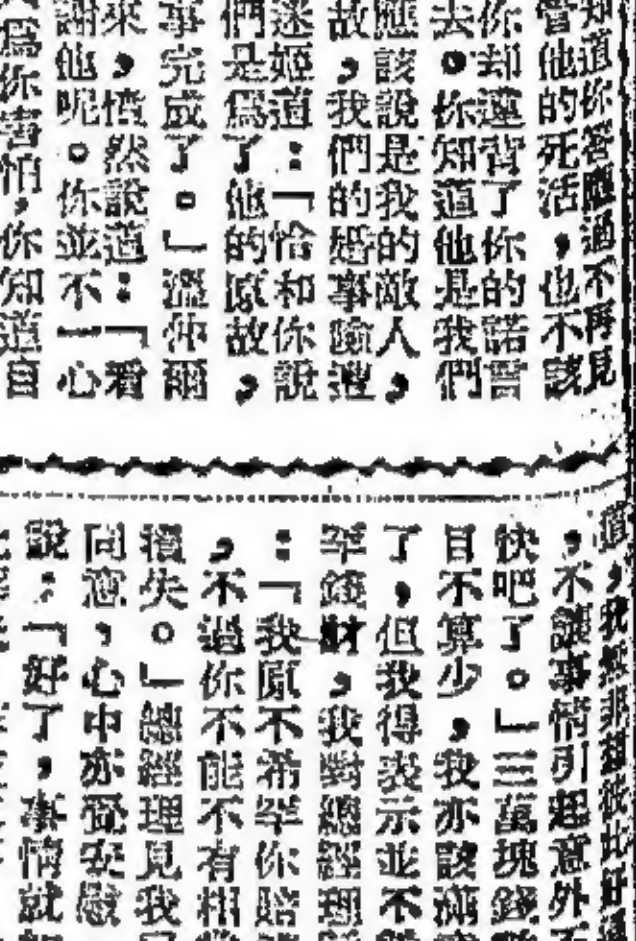 知道你答應過不再見
管他的死活，也不該
你却違背了你的諾言
去。你知道他是我們
應該說是我的敵人，
故，我們的婚事險遭
迷姬道：「恰和你說
們是爲了他的原故，
事完成了。」溫仲爾
來，憤然說道：「看
謝他呢。你並不一心
爲你害怕，你知道自
道，我並非孤彼此好
，不讓事情引起意外
快吧了。」三萬塊錢
目不算少，我亦該滿
了，但我得表示並不
罕錢財，我對總經理
：「我原不希罕你賠
，不過你不能不有相
損失。」總經理見我
同意，心中亦覺安慰
說：「好了，事情就